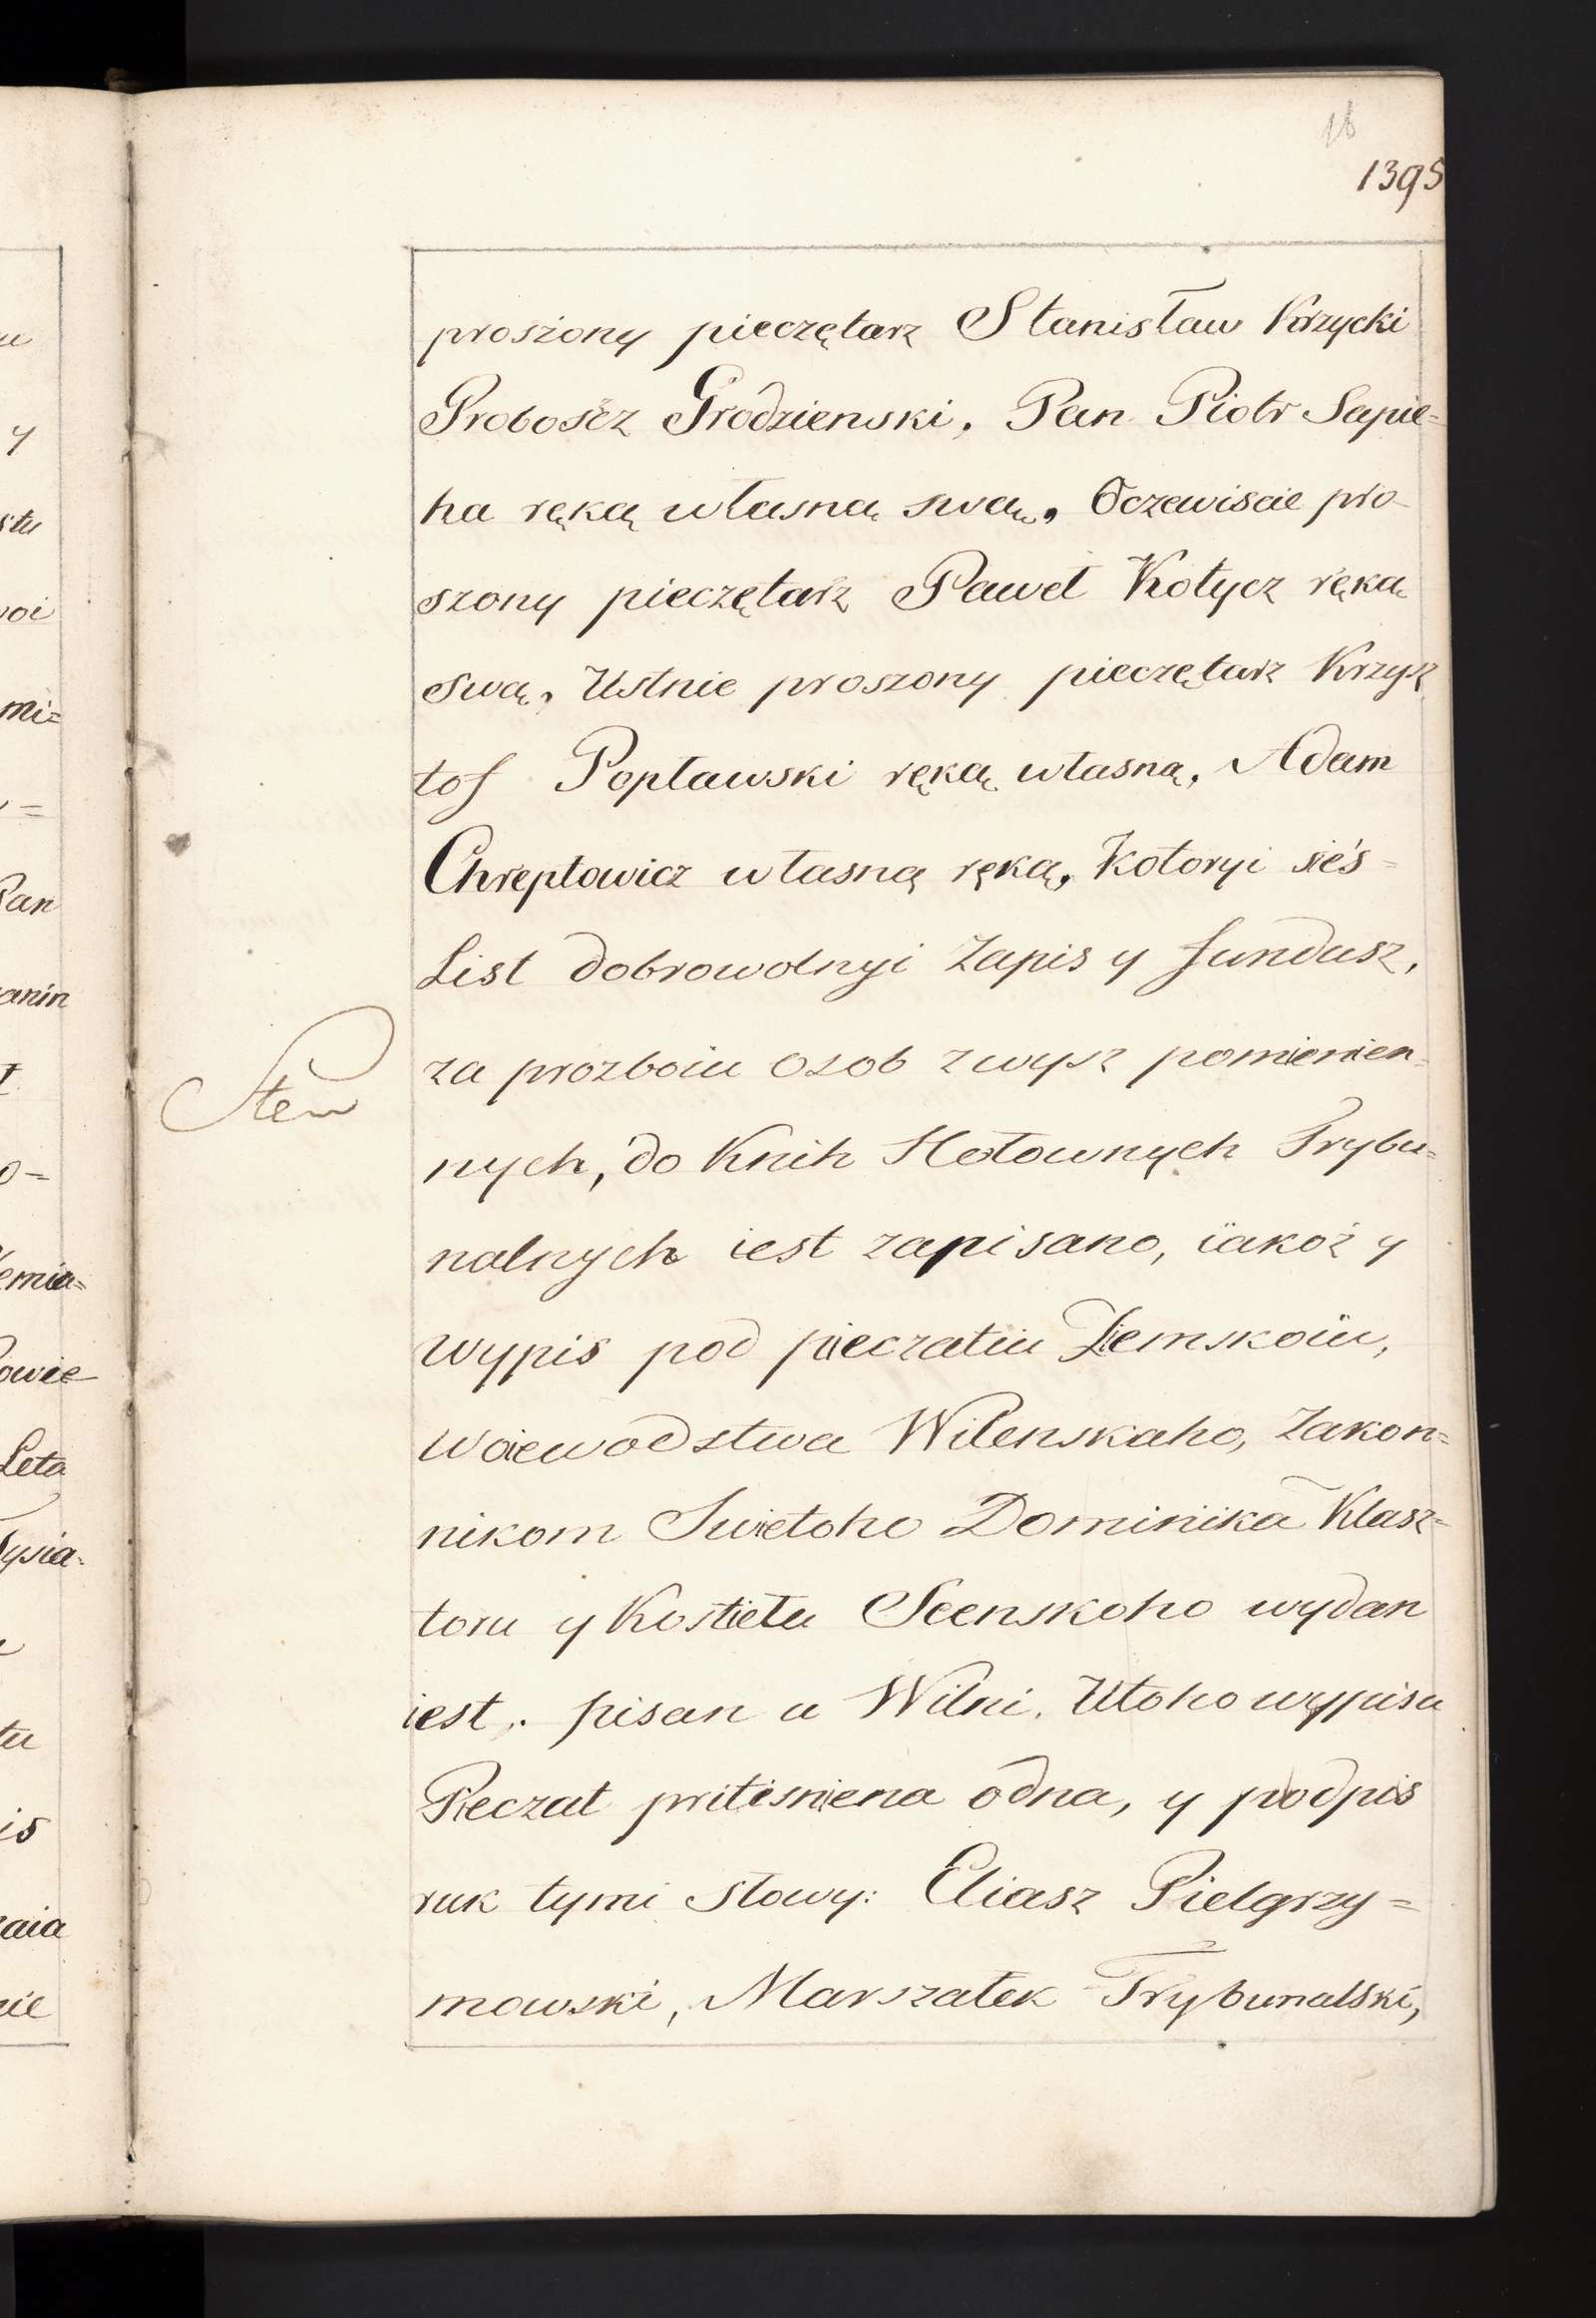 16
1395
prosżony pieczętarz Stanisław Krzycki
Probośćz Grodzienski. Pan Piotr Sapie=
ha ręką własną swą. Oczewiscie pro-
szony pieczętarz Paweł Kotycz ręką
swą. Ustnie proszony pieczętarz Krzysz
tof Popławski ręką własną. Adam
Chreptowicz własną ręką. Kotoryi sieś-
List dobrowolnyi Zapis y fundusz,
za prozboiu osob zwysz pomienien=
nych, do Knih Hołownych Trybu=
nalnych iest zapisano, iakoż y
wypis pod pieczatiu Ziemskoiu,
woiewodztwa Wilenskaho, Zakon=
nikom Swietoho Dominika Klasz=
toru y Kostieła Seenskoho wydan
iest. pisan u Wilni. Utoho wypisu
Pieczat pritisniena odna, y podpis
ruk tymi słowy: Eliasz Pielgrzy=
mowski, Marszałek Trybunalski,
u
y
stu
woi
mi=
=
Pan
anin
o=
emia=
owie
Leta
Tysia=
tu
is
aia
nie